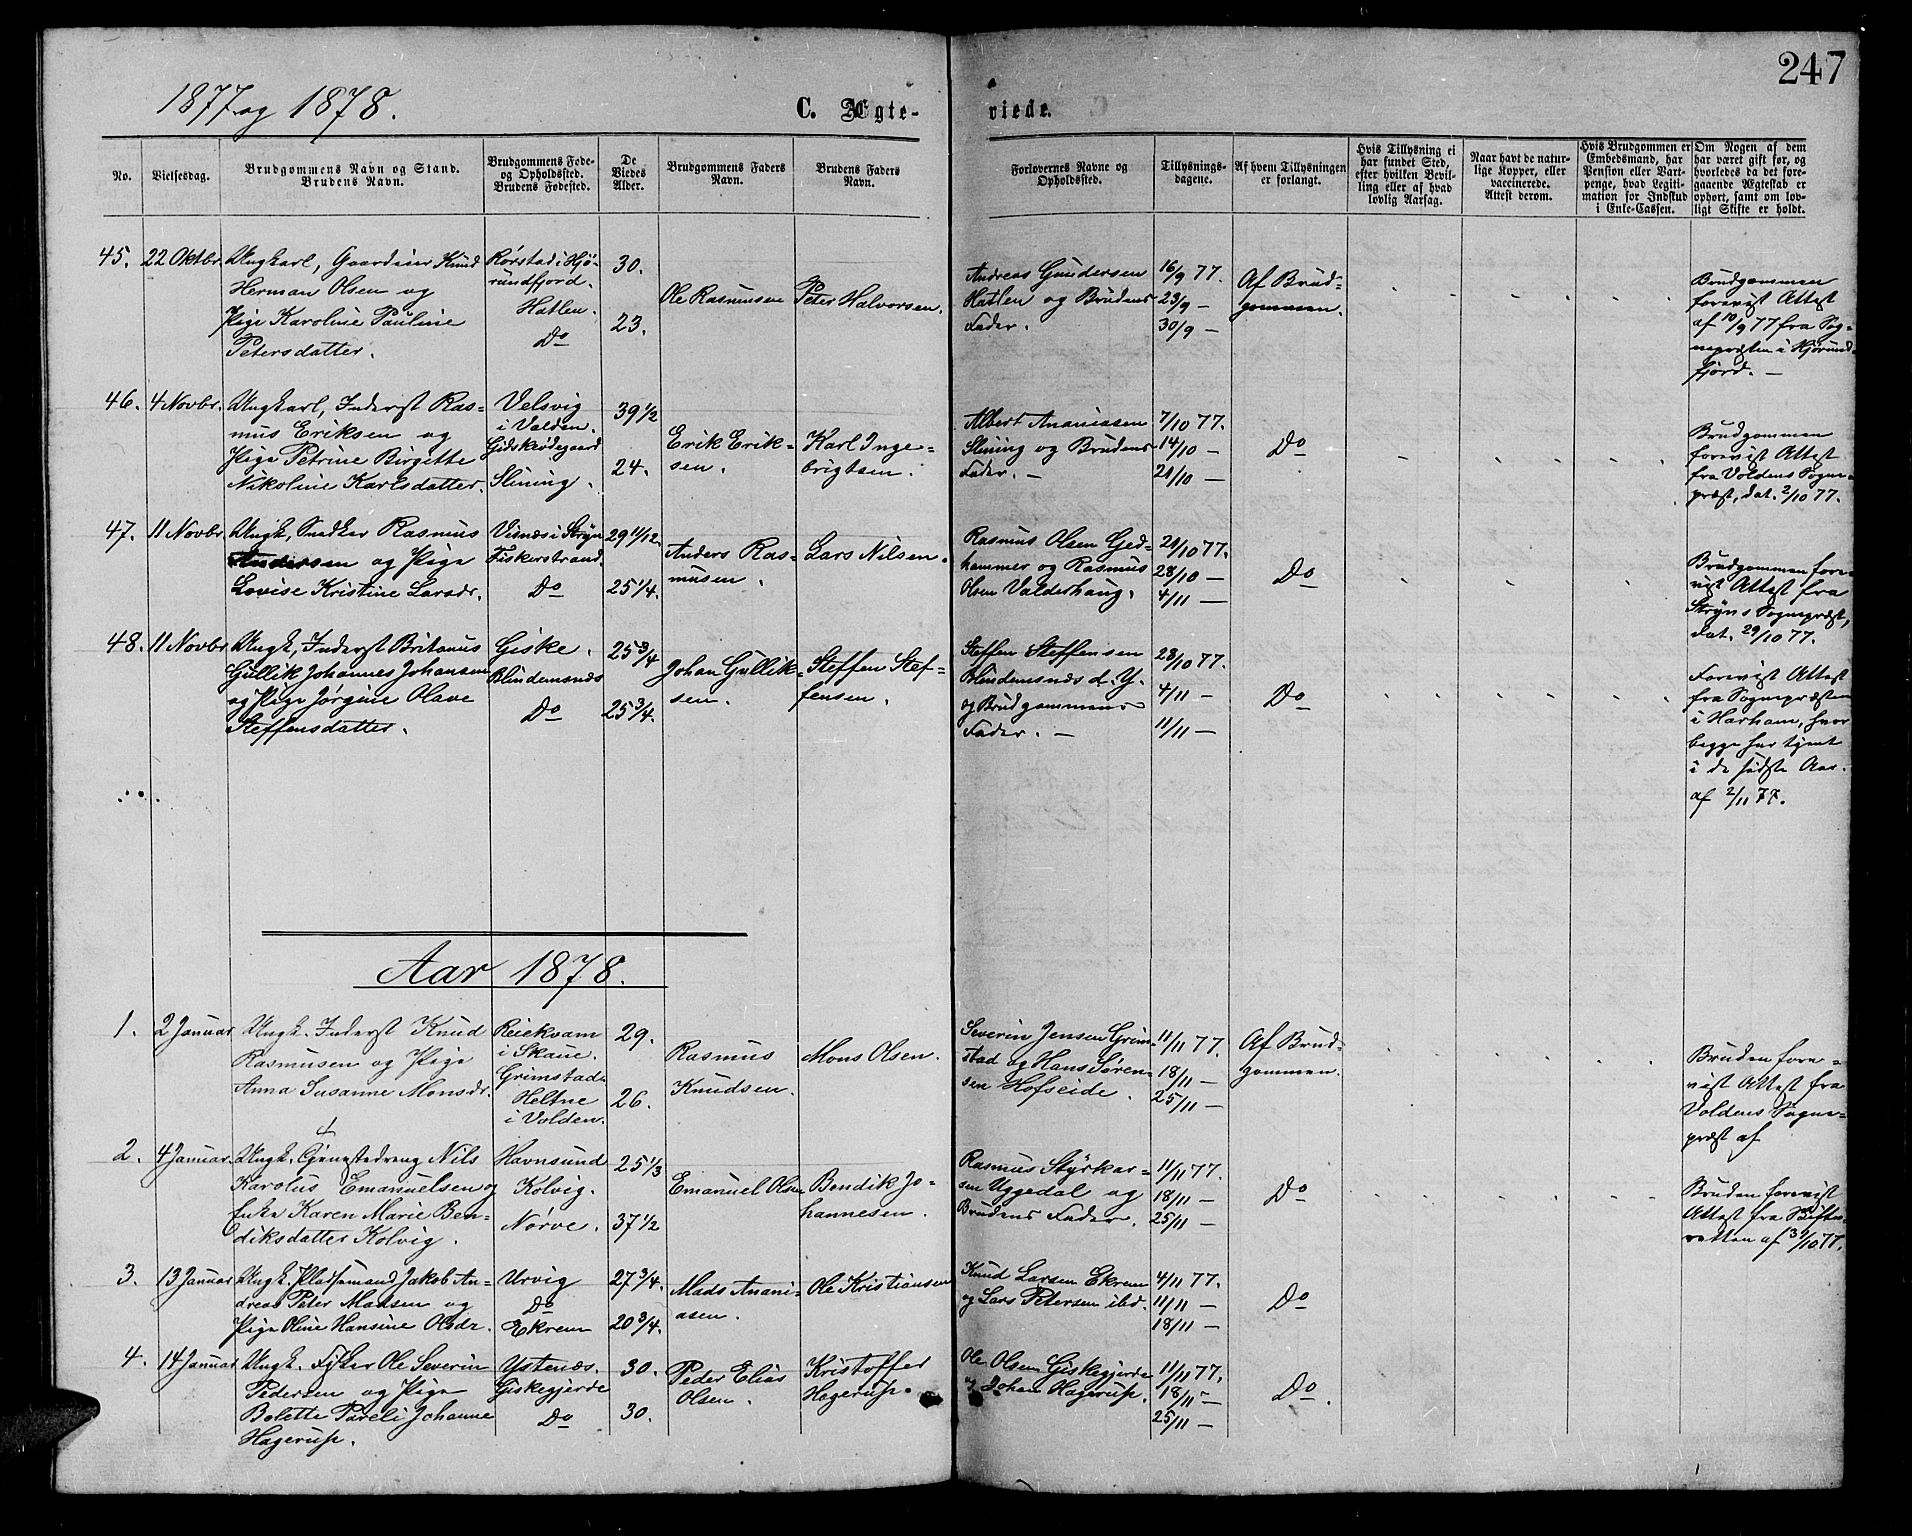 247
1877 og 1878.
C. Ægte-
viede.
No.
Vielsesdag.
Brudgommens Navn og Stand.
Brudens Navn.
Brudgommens Føde-
og Opholdssted.
Brudens Fødested.
De
Viedes
Alder.
Brudgommens Faders
Navn.
Brudens Faders
Navn.
Forlovernes Navne og
Opholdssted.
Tillysnings-
dagene.
Af hvem Tillysningen
er forlangt.
Hvis Tillysning ei
har fundet Sted,
efter hvilken Bevil-
ling eller af hvad
lovlig Aarsag.
Naar havt de natur-
lige Kopper, eller
vaccinerede.
Attest derom.
Hvis Brudgommen er
Embedsmand, har
Pension eller Vart-
penge, hvad Legiti-
mation for Indskud
i Enke-Cassen.
Om Nogen af dem
har været gift før, og
hvorledes da det fore-
gaaende Ægteskab er
ophørt, samt om lov-
ligt Skifte er holdt.
45. 22 Oktbr.
Ungkarl, Gaardeier Knud
Herman Olsen og
Pige Karoline Pauline
Petersdatter.
Rørstad i Hjø-
rundfjord.
Hatlen.
Do
30.
23.
Ole Rasmussen
Peter Halvorsen.
Andreas Gundersen
Hatlen og Brudens
Fader.
16/9 77.
23/9 —
30/9 —
Af Brud-
gommen.
Brudgommen
forevist Attest
af 10/9 77 fra Sog-
nepræsten i Hjørund-
fjord. —
46. 4 Novbr.
Ungkarl, Inderst Ras-
mus Eriksen og
Pige Petrine Birgitte
Nikoline Karlsdatter.
Velsvig
i Volden.
Gidskeødegaard
Slining.
39 1/2
24.
Erik Erik-
sen.
Karl Inge-
brigtsen.
Albert Ananiasen
Slining og Brudens
Fader. —
7/10 77.
14/10 —
21/10 —
Do
Brudgommen
forevist Attest
fra Voldens Sogne-
præst, dat. 2/10 77.
47. 11 Novbr.
Ungk, Snedker Rasmus
Andersen og Pige
Lovise Kristine Larsdr.
Visnæs i Stryn
Fiskerstrand.
Do
29 11/12.
25 1/4.
Anders Ras-
musen.
Lars Nilsen.
Rasmus Olsen Ged-
hammer og Rasmus
Olsen Valderhaug.
21/10 77.
28/10 —
4/11 —
Do
Brudgommen fore-
vist Attest fra
Stryns Sognepræst,
dat. 29/10 77.
48. 11 Novbr
Ungk, Inderst Britanus
Gullik Johannes Johansen
og Pige Jørgine Olave
Steffensdatter.
Giske.
Blindemsnæs
Do
25 3/4
25 3/4.
Johan Gullik-
sen.
Steffen Stef-
fensen.
Steffen Steffensen
Blindemsnæs d. Y.
og Brudgommens
Fader. —
28/10 77.
4/11 —
11/11 —
Do
Forevist Attest
fra Sognepræsten
i Harham, hvor
begge har tjent
i de sidste Aar.
af 2/11 77.
Aar 1878.
1. 2 Januar.
Ungk. Inderst Knud
Rasmusen og Pige
Anna Susanne Monsdr.
Reiekvam
i Skaue.
Grimstad
Heltne
i Volden.
29.
26.
Rasmus
Knudsen.
Mons Olsen.
Severin Jensen Grim-
stad og Hans Søren-
sen Hofseide.
11/11 77.
18/11 —
25/11 —
Af Brud-
gommen.
Bruden fore-
vist Attest fra
Voldens Sogne-
præst af
2. 4 Januar.
Ungk. Tjenestedreng Nils
Karolus Emanuelsen og
Enke Karen Marie Ben-
diksdatter Kolvig.
Havnsund
Kolvig.
Nørve.
25 1/3
37 1/2
Emanuel Olsen
Bendik Jo-
hannesen.
Rasmus Styrkar-
sen Uggedal og
Brudens Fader.
11/11 77.
18/11 —
25/11 —
Do
Bruden forevist
Attest fra Skifte-
retten af 31/10 77.
3. 13 Januar
Ungk. Pladsemand Jakob An-
dreas Peter Madsen og
Pige Oline Hansine Olsdr.
Urvig
Do
Ekrem
27 3/4.
20 3/4.
Mads Anani-
asen.
Ole Kristiansen
Knud Larsen Ekrem
og Lars Petersen ibd.
4/11 77.
11/11 —
18/11 —
Do
4. 14 Januar
Ungk. Fisker Ole Severin
Pedersen og Pige
Bolette Pareli Johanne
Hagerup.
Ystenæs.
Giskegjerde
Do
30.
30.
Peder Elias
Olsen.
Kristoffer
Hagerup.
Ole Olsen Giskegjerde
og Johan Hagerup.
11/11 77.
18/11 —
25/11 —
Do.